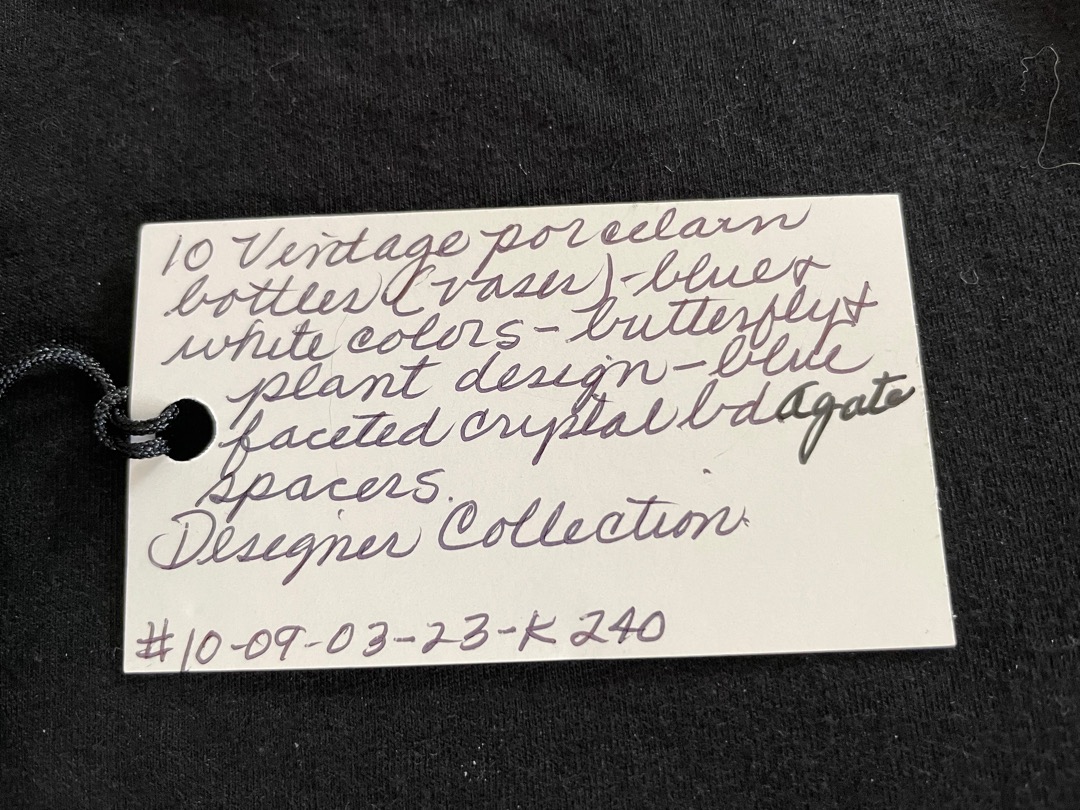 10 Vintage porcelain
bottles (vases) - blue &
white colors - butterfly &
plant design - blue
faceted crystal bd agate
spacers.
Designer Collection.
#10-09-03-23-K 240